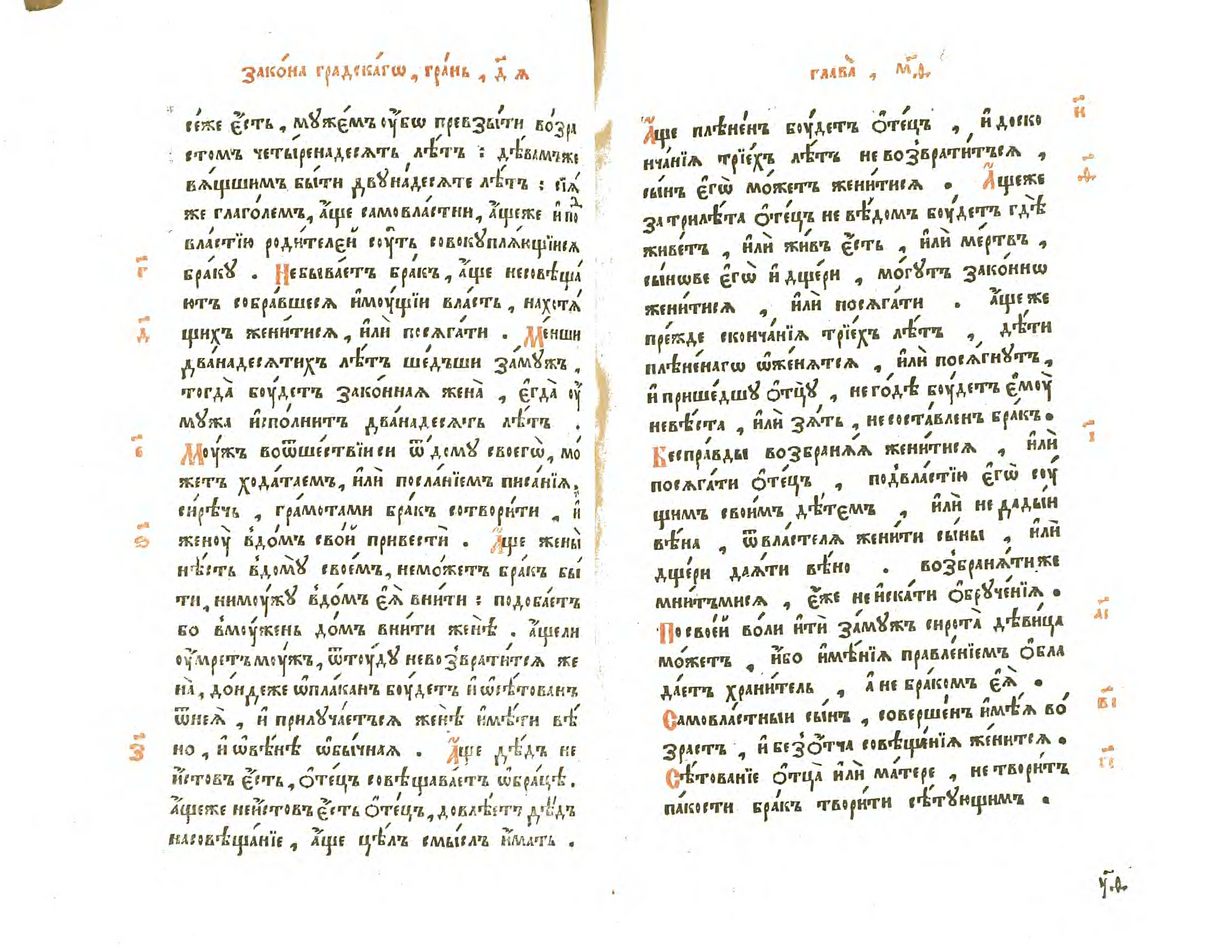 Зако́на градска́гѡ, гра́нь, д҃ ѧ
се́же є҆́сть, мꙋже́мъ оу҆́бѡ превзы́ти во́зра
стомъ четы́ренадесять лѣ́тъ : дѣ́вамже
вѧ́щшимъ бы́ти двꙋна́десяте лѣ́тъ : сїѧ̀
же глаго́лемъ, а҆́ще самовла́стни, а҆́щеже и҆ по́д
вла́стїю роди́телей соу́ть совокꙋплѧ́ющїисѧ
бра́кꙋ . Небыва́етъ бра́къ, а҆́ще несовѣща́
ютъ собра́вшесѧ и҆моу́щїи вла́сть, нахотѧ́
щихъ жени́тисѧ, и҆лѝ посѧга́ти . Ме́нши
двана́десѧтихъ лѣ́тъ ше́дъши за́мꙋжъ,
тогда̀ боу́детъ зако́нная жена̀, є҆гда̀ оу҆
мꙋ́жа и҆спо́лнитъ двана́десѧть лѣ́тъ .
Моу́жъ воѿше́ствїиси ѿ до́мꙋ своегѡ̀, мо́
жетъ хода́таемъ, и҆лѝ посла́нїемъ писа́нїѧ,
си́рѣчь, гра́мотами бра́къ сотвори́ти, и҆
женоу̀ в̾до́мъ сво́й привестѝ . А҆́ще жены̀
нѣ́сть в̾до́мꙋ свое́мъ, немо́жетъ бра́къ бы́
ти, нимоу́жꙋ в̾до́мъ є҆ѧ̀ вни́ти : подоба́етъ
бо в̾моу́жень до́мъ вни́ти женѣ̀ . а҆́щели
оу҆́мретъ моу́жъ, ѿтоу́дꙋ невозврати́тсѧ же
на̀, до́ндеже ѡ҆пла́канъ боу́детъ и҆ ѡ҆сѣ́тованъ
ѿнеѧ̀, и҆ прилꙋча́етьсѧ женѣ̀ и҆мѣ́ти вѣ́
но, и҆ ѡ҆вѣ́нѣ ѡ҆бы́чная . А҆́ще дѣ́дъ не
и҆́стовъ є҆́сть, ѻ҆те́цъ совѣщава́етъ ѡ҆бра́цѣ.
а҆́щеже неи҆́стовъ є҆́сть ѻ҆те́цъ, довлѣ́етъ дѣ́дъ
насовѣща́нїе, а҆́ще цѣ́лъ смы́слъ и҆́мать .
г҃
д҃
є҃
ѕ҃
з҃
глава̀, м҃ѳ.
А҆́ще плѣне́нъ боу́детъ ѻ҆те́цъ, и҆ доско
нча́нїѧ трїе́хъ лѣ́тъ невозврати́тъсѧ,
сы́нъ є҆гѡ̀ мо́жетъ жени́тисѧ . А҆́щеже
затрилѣ́та ѻ҆те́цъ невѣ́домъ боу́детъ гдѣ̀
живе́тъ, и҆лѝ жи́въ є҆́сть, и҆лѝ ме́ртвъ,
сы́нове є҆гѡ̀ и҆ дще́ри, мо́гꙋтъ зако́ннѡ
жени́тисѧ, и҆лѝ посѧга́ти . а҆́щеже
пре́жде сконча́нїѧ трїе́хъ лѣ́тъ, дѣ́ти
плѣне́нагѡ ѡ҆же́нятсѧ, и҆лѝ посѧ́гнꙋтъ,
и҆ прише́дшꙋ ѻ҆тцꙋ̀, него́дѣ боу́детъ є҆моу̀
невѣ́ста, и҆лѝ зѧ́ть, несоста́вленъ бра́къ.
Беспра́вды возбранѧ́ѧ жени́тисѧ, и҆лѝ
посѧга́ти ѻ҆те́цъ, под̾вла́стїю є҆гѡ̀ соу́
щимъ свои́мъ дѣ́темъ, и҆лѝ недады́и
вѣ́на, ѿвла́стелѧ жени́ти сы́ны, и҆лѝ
дще́ри даѧ́ти вѣ́но . возбранѧ́тиже
мни́тъмисѧ, є҆́же неи҆ска́ти ѻ҆брꙋче́нїѧ.
Посвое́й во́ли и҆тѝ за́мꙋжъ сирота̀ дѣви́ца
мо́жетъ, и҆́бо и҆мѣ́нїѧ правле́нїемъ ѻ҆бла
да́етъ храни́тель, а҆ не бра́комъ є҆ѧ̀ .
Самовла́стныи сы́нъ, соверше́нъ и҆мѣ́ѧ во́
зрастъ, и҆ без̾ѻ҆́тча совѣща́нїѧ жени́тсѧ.
Сѣ́тованїе ѻ҆тца̀ и҆лѝ ма́тере, нетвори́тъ
па́кости бра́къ твори́ти сѣ́тꙋющимъ .
и҃
ѳ҃
і҃
а҃і
в҃і
г҃і
у҃ѳ.